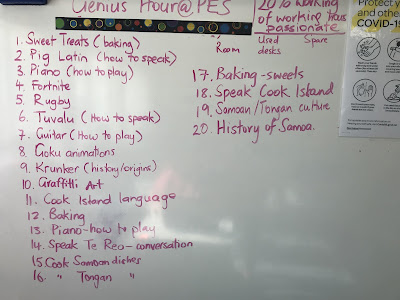 Genius Hour@PES
1. Sweet Treats (baking)
2. Pig Latin (how to speak)
3. Piano (how to play)
4. Fortnite
5. Rugby
6. Tuvalu (How to speak)
7. Guitar (How to play)
8. Goku animations
9. Krunker (history/origins)
10. Graffitti Art
11. Cook Island language
12. Baking
13. Piano-how to play
14. Speak Te Reo-conversation
15. Cook Samoan dishes
16. " Tongan "
20% working
of working
passionate
? Used Spare
Room desks
17. Baking-sweets
18. Speak Cook Island
19. Samoan/Tongan culture
20. History of Samoa.
Protect
and othe
COVID-19